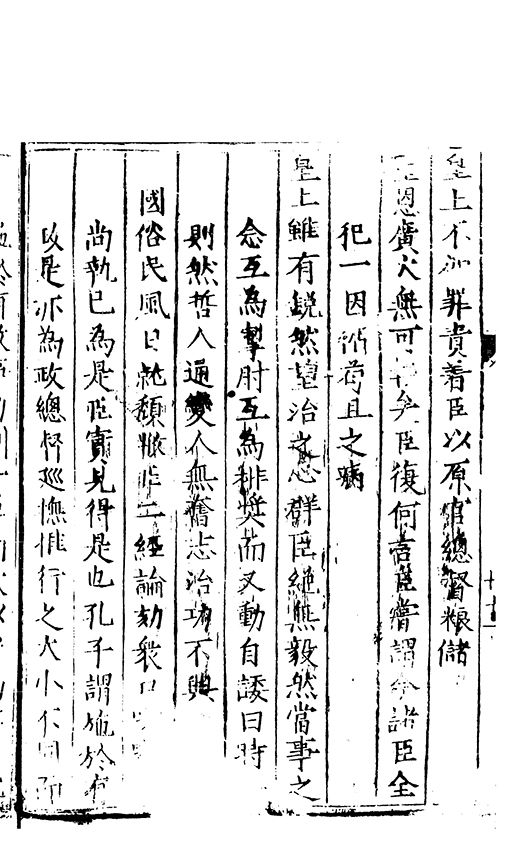 皇上不加罪責着臣以原官總督粮儲
恩廣大無可矣臣復何言臣嘗謂今諸臣全
犯一因循苟且之病
皇上雖有銳然望治之心群臣絕無毅然當事之
念互為掣肘互為排奬而又動自諉曰時
則然哲人通變人無奮志治功不興
國俗民風日就頹敝非工經論劾衆口
尚執已為是臣實見得是也孔子謂施於有
政是亦為政總督廵撫惟行之大小不同